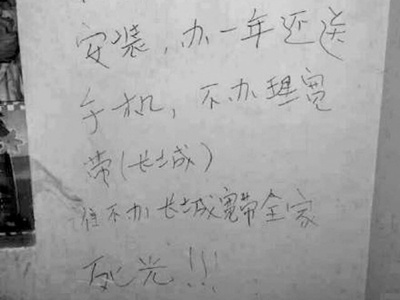 安装，办一年还送
手机，不办理宽
带(长城)
谁不办长城宽带全家
死光!!!